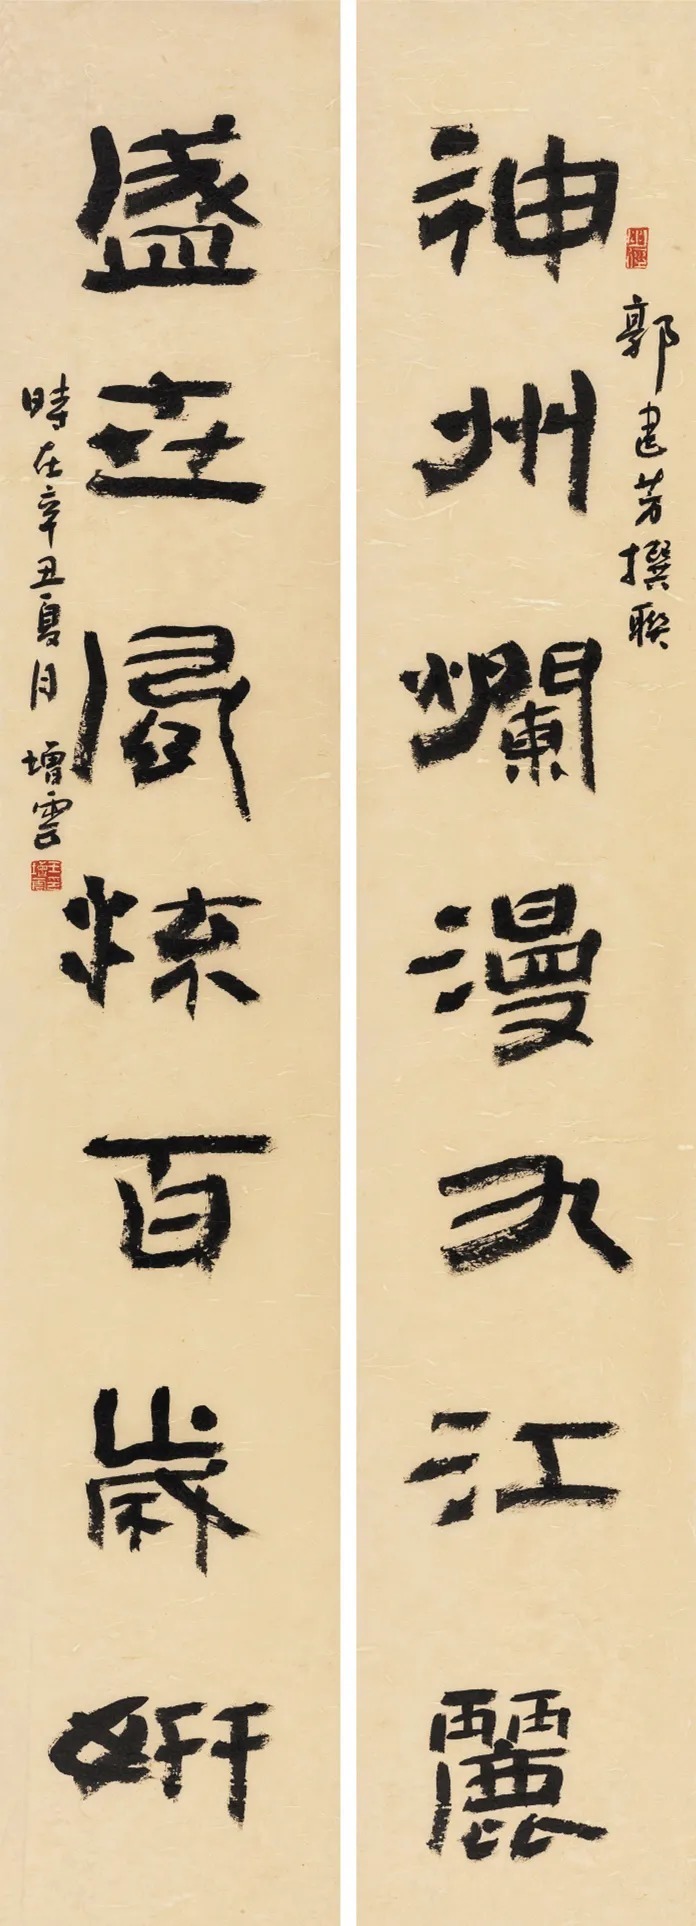 郭建芳撰聯
神州爛漫九江麗
盛世風流百歲妍
時在辛丑夏月 增雲